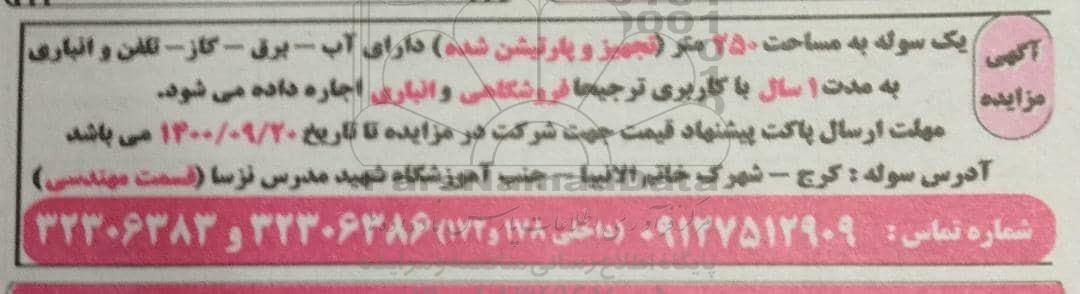 آگهی
مزایده
یک سوله به مساحت ۲۵۰ متر (تجهیز و پارتیشن شده) دارای آب – برق – گاز – تلفن و انباری
به مدت ۱ سال با کاربری ترجیحا فروشگاهی و انباری اجاره داده می شود.
مهلت ارسال پاکت پیشنهاد قیمت جهت شرکت در مزایده تا تاریخ ۱۴۰۰/۰۹/۲۰ می باشد
آدرس سوله : کرج – شهرک خاتم الانبیا – جنب آموزشگاه شهید مدرس نزسا (قسمت مهندسی)
شماره تماس : ۰۹۱۲۷۵۱۲۹۰۹ (داخلی ۱۷۸ و ۱۷۲) ۳۲۳۰۶۳۸۶ و ۳۲۳۰۶۳۸۳
پایگاه اطلاع رسانی مناقصه و مزایده